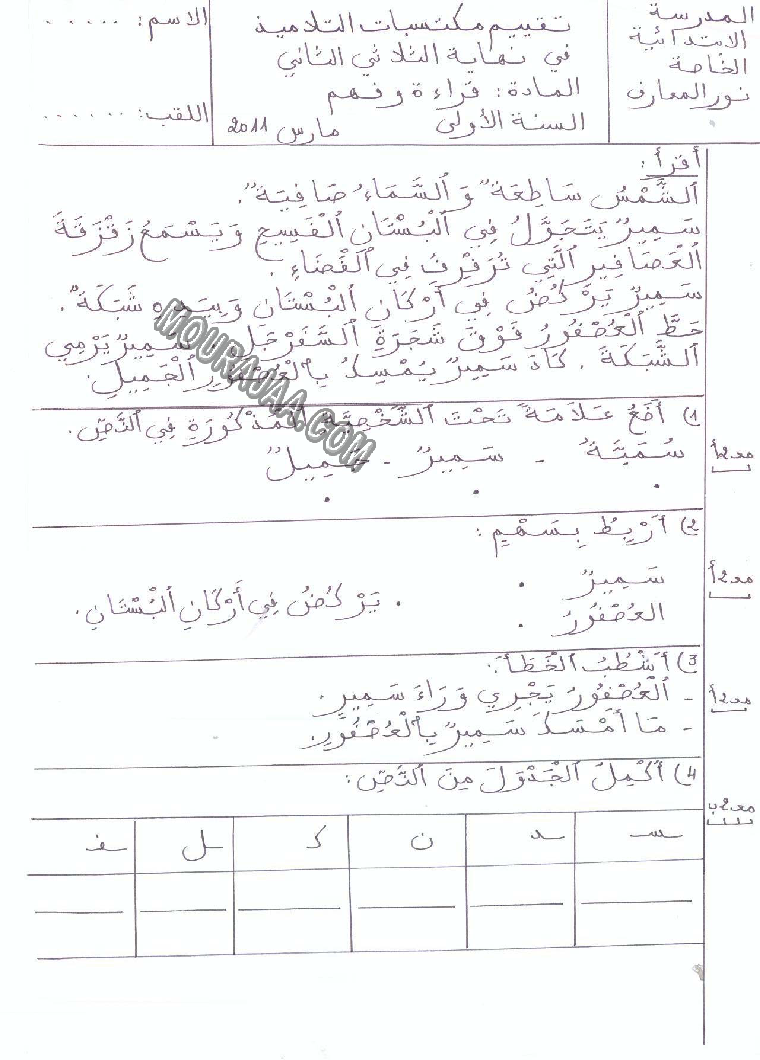 المدرسة
الابتدائية
الخاصة
نور المعارف
تقييم مكتسبات التلاميذ
في نهاية الثلاثي الثاني
المادة: قراءة وفهم
السنة الأولى مارس 2011
الاسم: ......
اللقب: ......
أقرأ:
اَلشَّمْسُ سَاطِعَةٌ وَ اَلسَّمَاءُ صَافِيَةٌ.
سَمِيرٌ يَتَجَوَّلُ فِي اَلْبُسْتَانِ اَلْفَسِيحِ وَيَسْمَعُ زَقْزَقَةَ
اَلْعَصَافِيرِ اَلَّتِي تُرَفْرِفُ فِي اَلْفَضَاءِ.
سَمِيرٌ يَرْكُضُ فِي أَرْكَانِ اَلْبُسْتَانِ وَبِيَدِهِ شَبَكَةٌ.
حَطَّ اَلْعُصْفُورُ فَوْقَ شَجَرَةِ اَلسَّفَرْجَلِ. سَمِيرٌ يَرْمِي
اَلشَّبَكَةَ. كَادَ سَمِيرٌ يُمْسِكُ بِالْعُصْفُورِ اَلْجَمِيلِ.
1) أَضَعُ عَلَامَةً تَحْتَ اَلشَّخْصِيَّةِ اَلْمَذْكُورَةِ فِي اَلنَّصِّ.
سُمَيَّةُ - سَمِيرٌ - جَمِيلٌ
مع2أ
2) أَرْبِطُ بِسَهْمٍ:
سَمِيرٌ .
. يَرْكُضُ فِي أَرْكَانِ اَلْبُسْتَانِ.
العُصْفُورُ .
مع2أ
3) أَشْطُبُ اَلْخَطَأَ:
- اَلْعُصْفُورُ يَجْرِي وَرَاءَ سَمِيرٍ.
- مَا أَمْسَكَ سَمِيرٌ بِالْعُصْفُورِ.
مع2أ
4) أُكْمِلُ اَلْجَدْوَلَ مِنَ اَلنَّصِّ:
مع2ب
ـسـ ـد ن كـ ل ـفـ
MOURAJAA.COM